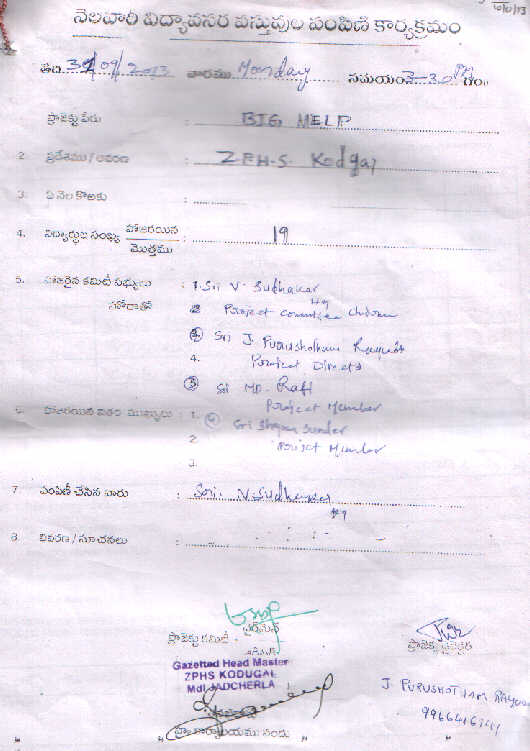 10/13
నెలవారి విద్యావసర వస్తువుల పంపిణి కార్యక్రమం
తేది 30/09/2013 వారము Monday సమయం 3-30 PM గం..
ప్రాజెక్టు పేరు : BIG HELP
2. ప్రదేశము / ఆవరణ : ZPH-S Kodgal
3. ఏ నెల కొఱకు :
4. విద్యార్థుల సంఖ్య హాజరయిన : 19
మొత్తము
5. హాజరైన కమిటి సభ్యులు : 1. Sri V. Sudhakar
హోదాతో 2 Project committee
Sri J. Purushotham
4. Project Director
Sri MD. Rafi
Project Member
6. హాజరయిన ఇతర ముఖ్యులు : 1. Sri Shyam Sunder
2 Project Member
3.
7. పంపిణీ చేసిన వారు : Sri. V. Sudhakar
8. వివరణ / సూచనలు :
చైర్మెన్
ప్రాజెక్టు కమిటీ
ప్రాజెక్టు డైరెక్టర్
Gazetted Head Master
ZPHS KODUGAL
Mdl JADCHERLA
J. PURUSHOTHAM
ప్రా. కార్యాలయము నందు